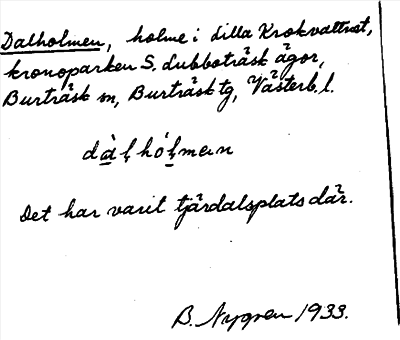 Dalholmen, holme i Lilla Krokvattnet,
kronoparken S. Lubboträsk ägor,
Burträsk sn, Burträsk tg, Västerb. l.
dàl̥hól̥mɐn
Det har varit tjärdalsplats där.
B. Nygren 1933.